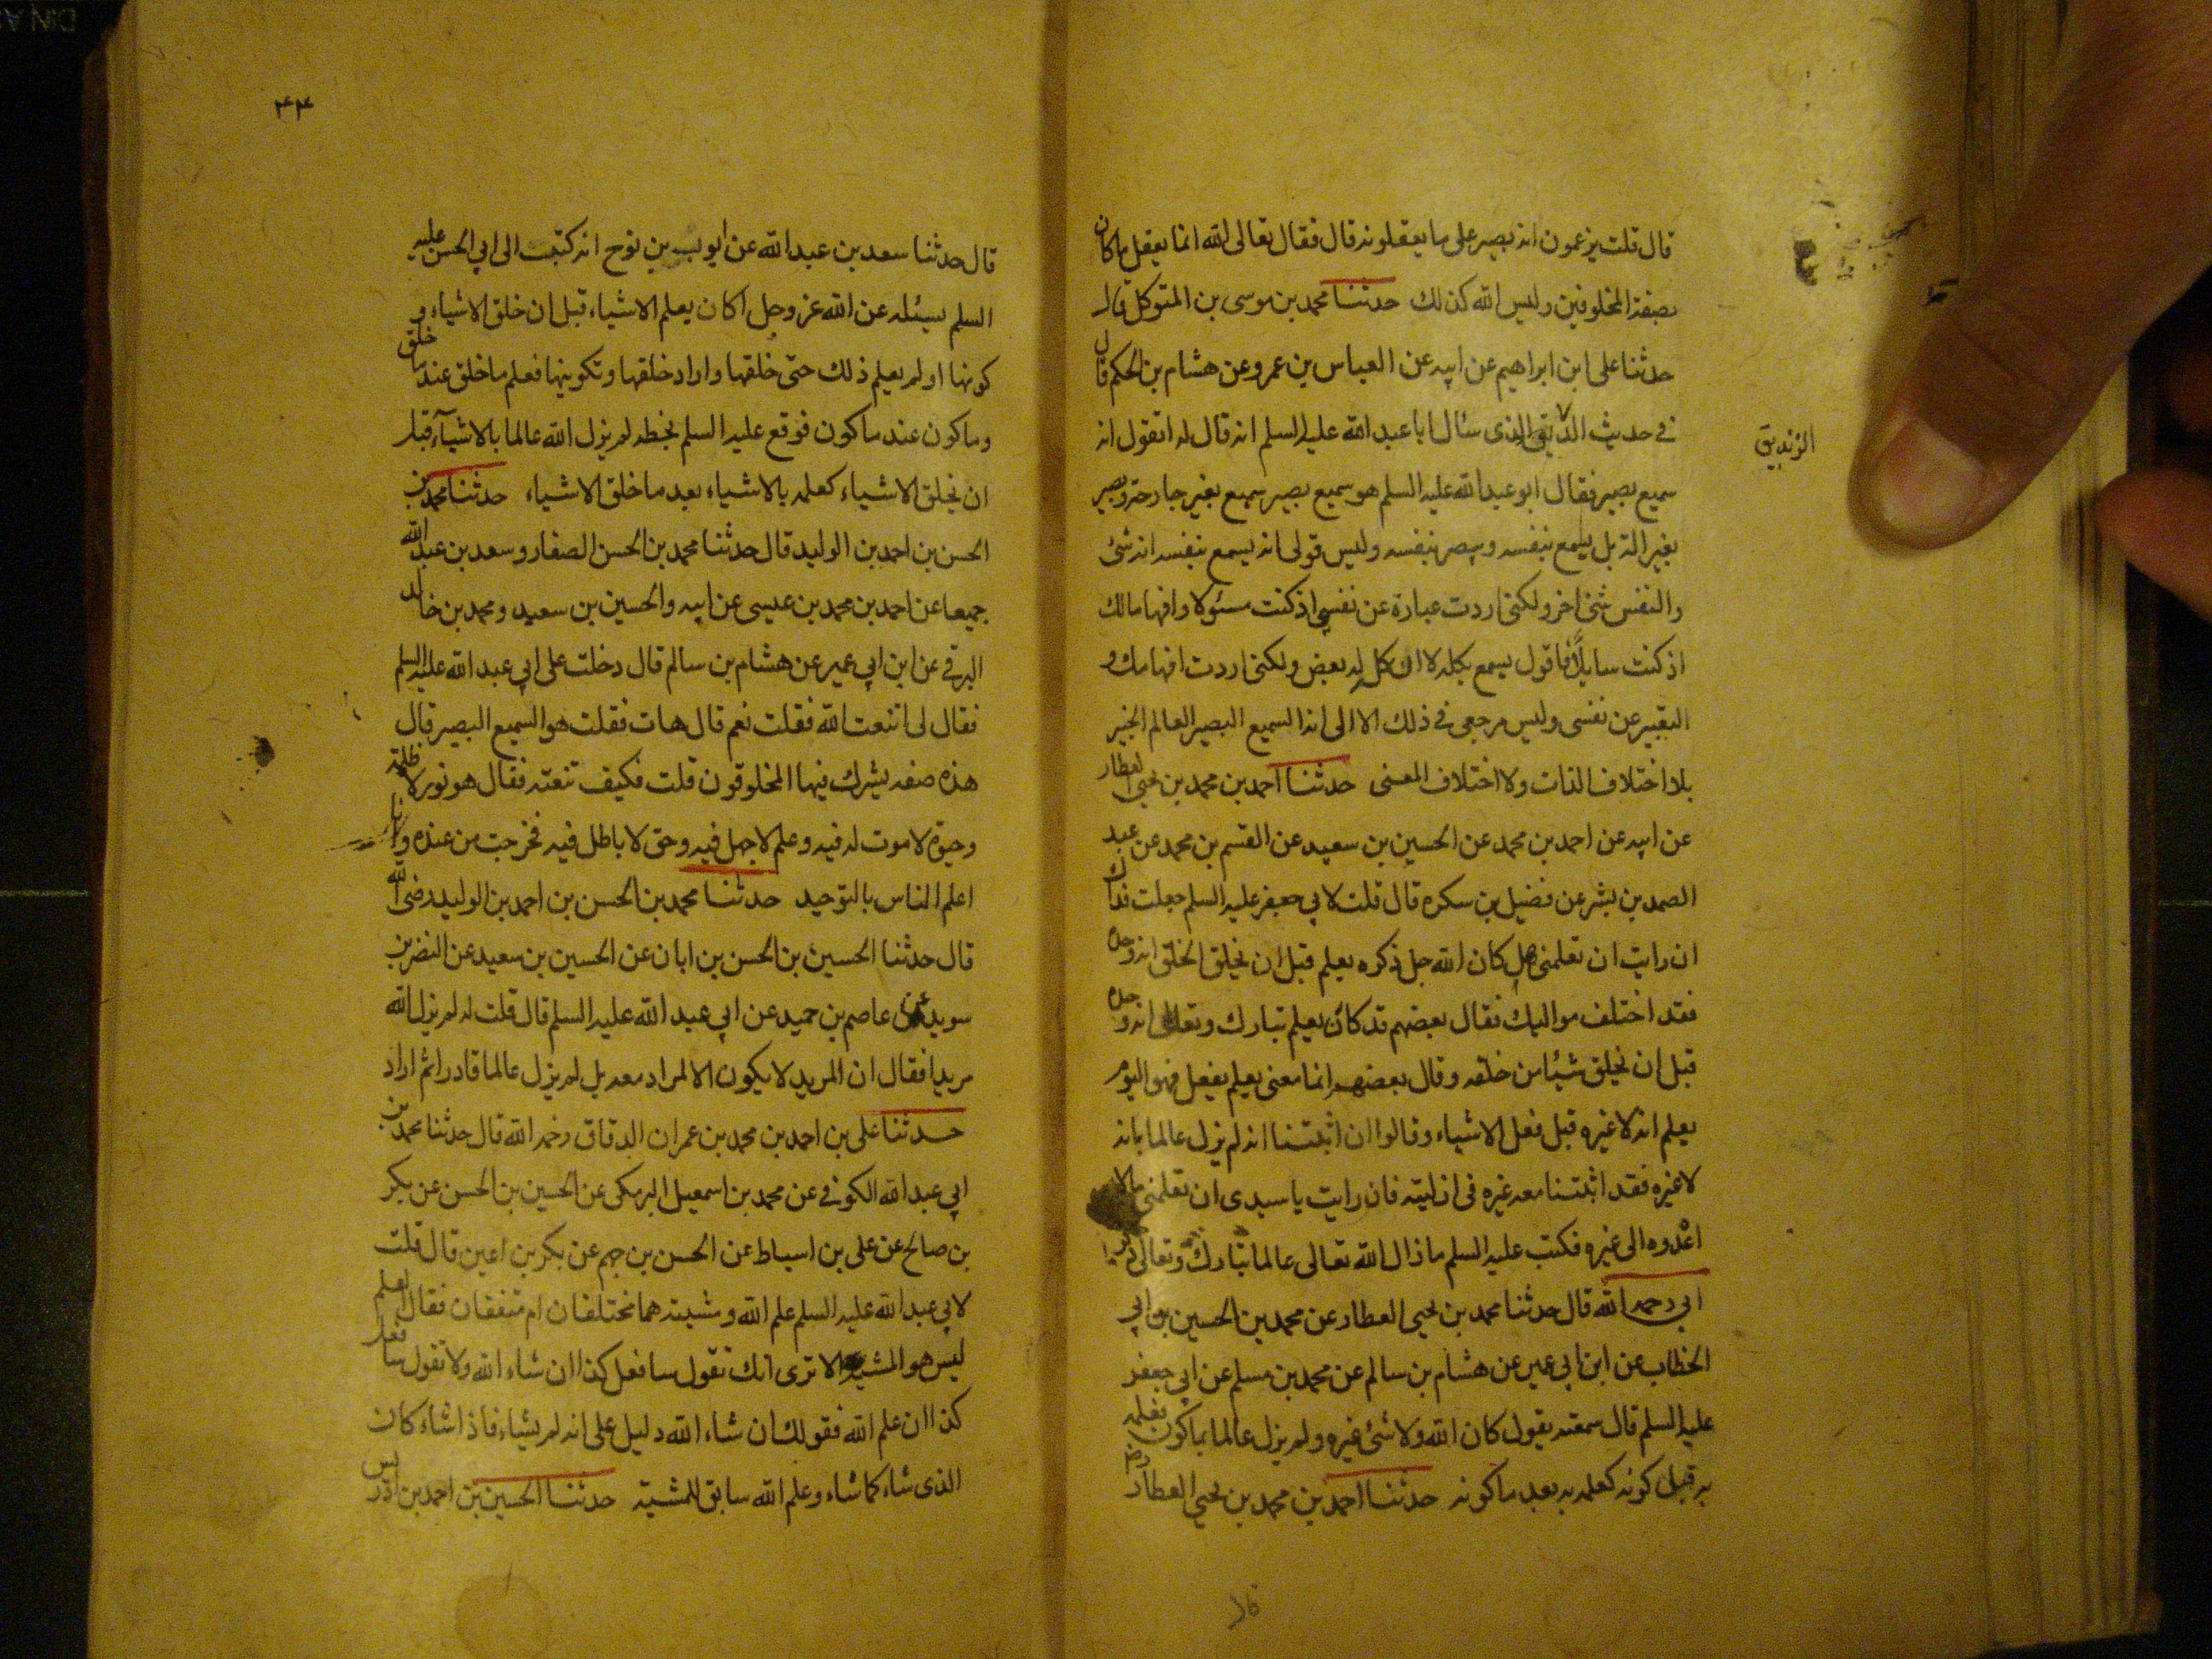 قال قلت يزعمون انه بصير على ما يعقلونه قال فقال تعالى الله انما يعقل ما كان
بصفة المخلوقين وليس الله كذلك حدثنا محمد بن موسى بن المتوكل قال
حدثنا على ابن ابراهيم عن ابيه عن العباس بن عمرو عن هشام بن الحكم قال
في حديث الذى سئال ابا عبد الله عليه السلم انه قال له اتقول انه
الزنديق
سميع بصير فقال ابو عبد الله عليه السلم هو سميع بصير سميع بغير جارحة وبصير
بغير الة بل يسمع بنفسه ويبصر بنفسه وليس قولى انه يسمع بنفسه انه شئ
والنفس شئ اخر ولكنى اردت عبارة عن نفسى اذ كنت مسئولا وافهاما لك
اذ كنت سايلا فاقول يسمع بكله لا ان كله له بعض ولكنى اردت افهامك و
التعبير عن نفسى وليس مرجعى في ذلك الا الى انه السميع البصير العالم الخبير
بلا اختلاف الذات ولا اختلاف المعنى حدثنا احمد بن محمد بن يحيى العطار
عن ابيه عن احمد بن محمد عن الحسين بن سعيد عن القسم بن محمد عن عبد
الصمد بن بشير عن فضيل بن سكره قال قلت لابي جعفر عليه السلم جعلت فداك
ان رايت ان تعلمنى هل كان الله جل ذكره يعلم قبل ان يخلق الخلق انه وحده
فقد اختلف مواليك فقال بعضهم قد كان يعلم تبارك وتعالى انه وحده
قبل ان يخلق شيئا من خلقه وقال بعضهم انما معنى يعلم يفعل فهو اليوم
يعلم انه لا غيره قبل فعل الاشياء وقالوا ان اثبتنا انه لم يزل عالما بانه
لا غيره فقد اثبتنا معه غيره فى ازليته فان رايت يا سيدى ان تعلمنى مالا
اعدوه الى غيره فكتب عليه السلم ما زال الله تعالى عالما تبارك وتعالى ذكره
ابي رحمه الله قال حدثنا محمد بن يحيى العطار عن محمد بن الحسين بن ابي
الخطاب عن ابن ابي عمير عن هشام بن سالم عن محمد بن مسلم عن ابي جعفر
عليه السلم قال سمعته يقول كان الله ولا شئ غيره ولم يزل عالما بما كون فعلمه
به قبل كونه كعلمه به بعد ما كونه حدثنا احمد بن محمد بن يحيى العطار رض
قال
٤٤
قال حدثنا سعد بن عبد الله عن ايوب بن نوح انه كتب الى ابي الحسن عليه
السلم يسئله عن الله عز وجل اكان يعلم الاشياء قبل ان خلق الاشياء و
كونها او لم يعلم ذلك حتى خلقها واراد خلقها وتكوينها فعلم ما خلق عند ما خلق
وما كون عند ما كون فوقع عليه السلم بخطه لم يزل الله عالما بالاشياء قبل
ان يخلق الاشياء كعلمه بالاشياء بعد ما خلق الاشياء حدثنا محمد بن
الحسن بن احمد بن الوليد قال حدثنا محمد بن الحسن الصفار وسعد بن عبد الله
جميعا عن احمد بن محمد بن عيسى عن ابيه والحسين بن سعيد ومحمد بن خالد
البرقي عن ابن ابي عمير عن هشام بن سالم قال دخلت على ابي عبد الله عليه السلم
فقال لى اتنعت الله فقلت نعم قال هات فقلت هو السميع البصير قال
هذه صفه يشرك فيها المخلوقون قلت فكيف تنعته فقال هو نور لا ظلمة
وحيوة لا موت له فيه وعلم لا جهل فيه وحق لا باطل فيه فخرجت من عنده وانا
اعلم الناس بالتوحيد حدثنا محمد بن الحسن بن احمد بن الوليد رضى الله
قال حدثنا الحسين بن الحسن بن ابان عن الحسين بن سعيد عن النضر بن
سويد عن عاصم بن حميد عن ابي عبد الله عليه السلم قال قلت له لم يزل الله
مريدا فقال ان المريد لا يكون الا لمراد معه بل لم يزل عالما قادرا ثم اراد
حدثنا على بن احمد بن محمد بن عمران الدقاق رحمه الله قال حدثنا محمد بن
ابي عبد الله الكوفي عن محمد بن اسمعيل البرمكى عن الحسين بن الحسن عن بكر
بن صالح عن على بن اسباط عن الحسن بن جهم عن بكر بن اعين قال قلت
لابي عبد الله عليه السلم علم الله ومشيته هما مختلفان ام متفقان فقال العلم
ليس هو المشية الا ترى انك تقول سافعل كذا ان شاء الله ولا تقول سافعل
كذا ان علم الله فقولك ان شاء الله دليل على انه لم يشاء فاذا شاء كان
الذى شاء كما شاء وعلم الله سابق للمشية حدثنا الحسين بن احمد بن ادريس